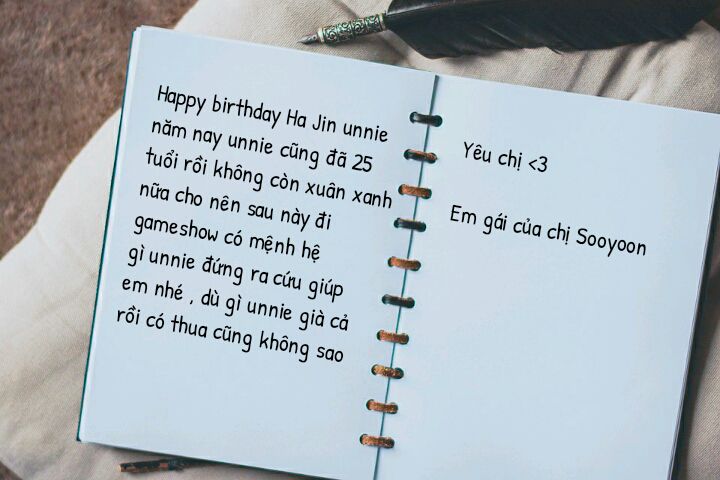 Happy birthday Ha Jin unnie
năm nay unnie cũng đã 25
tuổi rồi không còn xuân xanh
nữa cho nên sau này đi
gameshow có mệnh hệ
gì unnie đứng ra cứu giúp
em nhé , dù gì unnie già cả
rồi có thua cũng không sao
Yêu chị <3
Em gái của chị Sooyoon